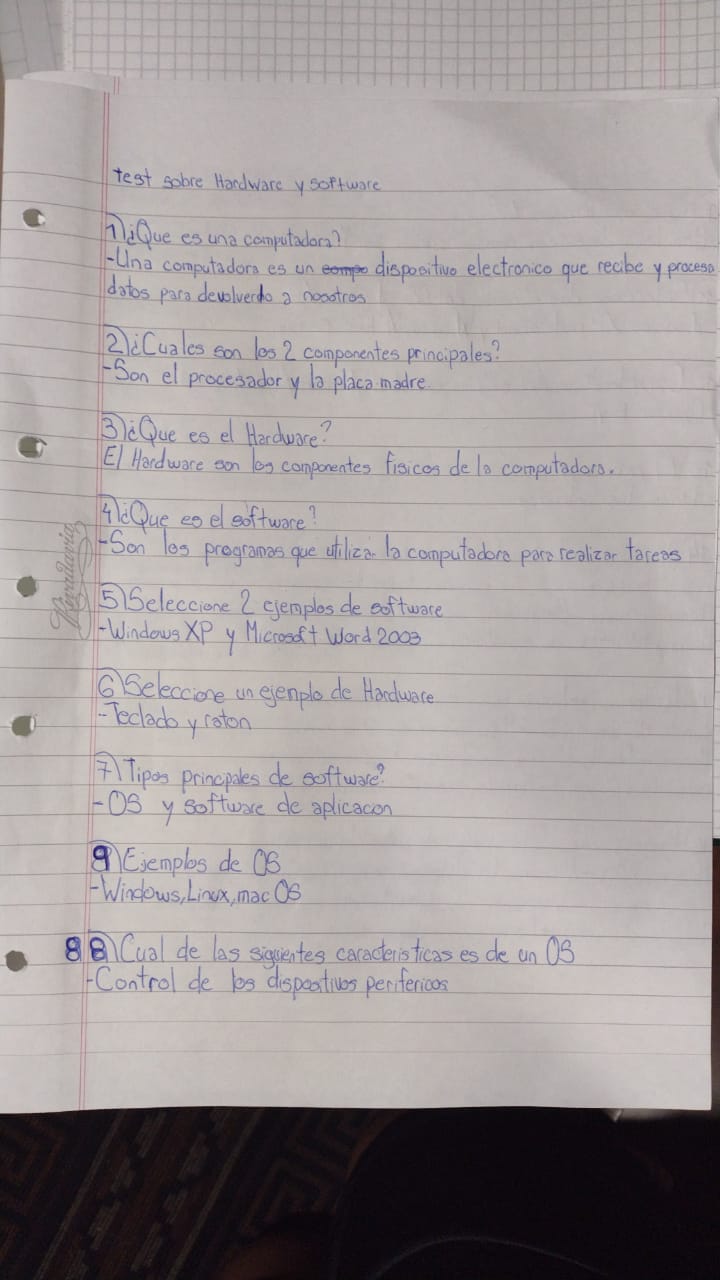 test sobre Hardware y software
1)¿Que es una computadora?
-Una computadora es un dispositivo electronico que recibe y procesa
datos para devolverdo a nosotros
2)¿Cuales son los 2 componentes principales?
-Son el procesador y la placa madre.
3)¿Que es el Hardware?
El Hardware son los componentes fisicos de la computadora.
4)¿Que es el software?
-Son los programas que utiliza la computadora para realizar tareas
Rivadavia
5)Seleccione 2 ejemplos de software
-Windows XP y Microsoft Word 2003
6)Seleccione un ejemplo de Hardware
-Teclado y raton
7)Tipos principales de software?
-OS y software de aplicacion
9)Ejemplos de OS
-Windows, Linux, mac OS
8 8)Cual de las siguientes caracteristicas es de un OS
-Control de los dispositivos perifericos